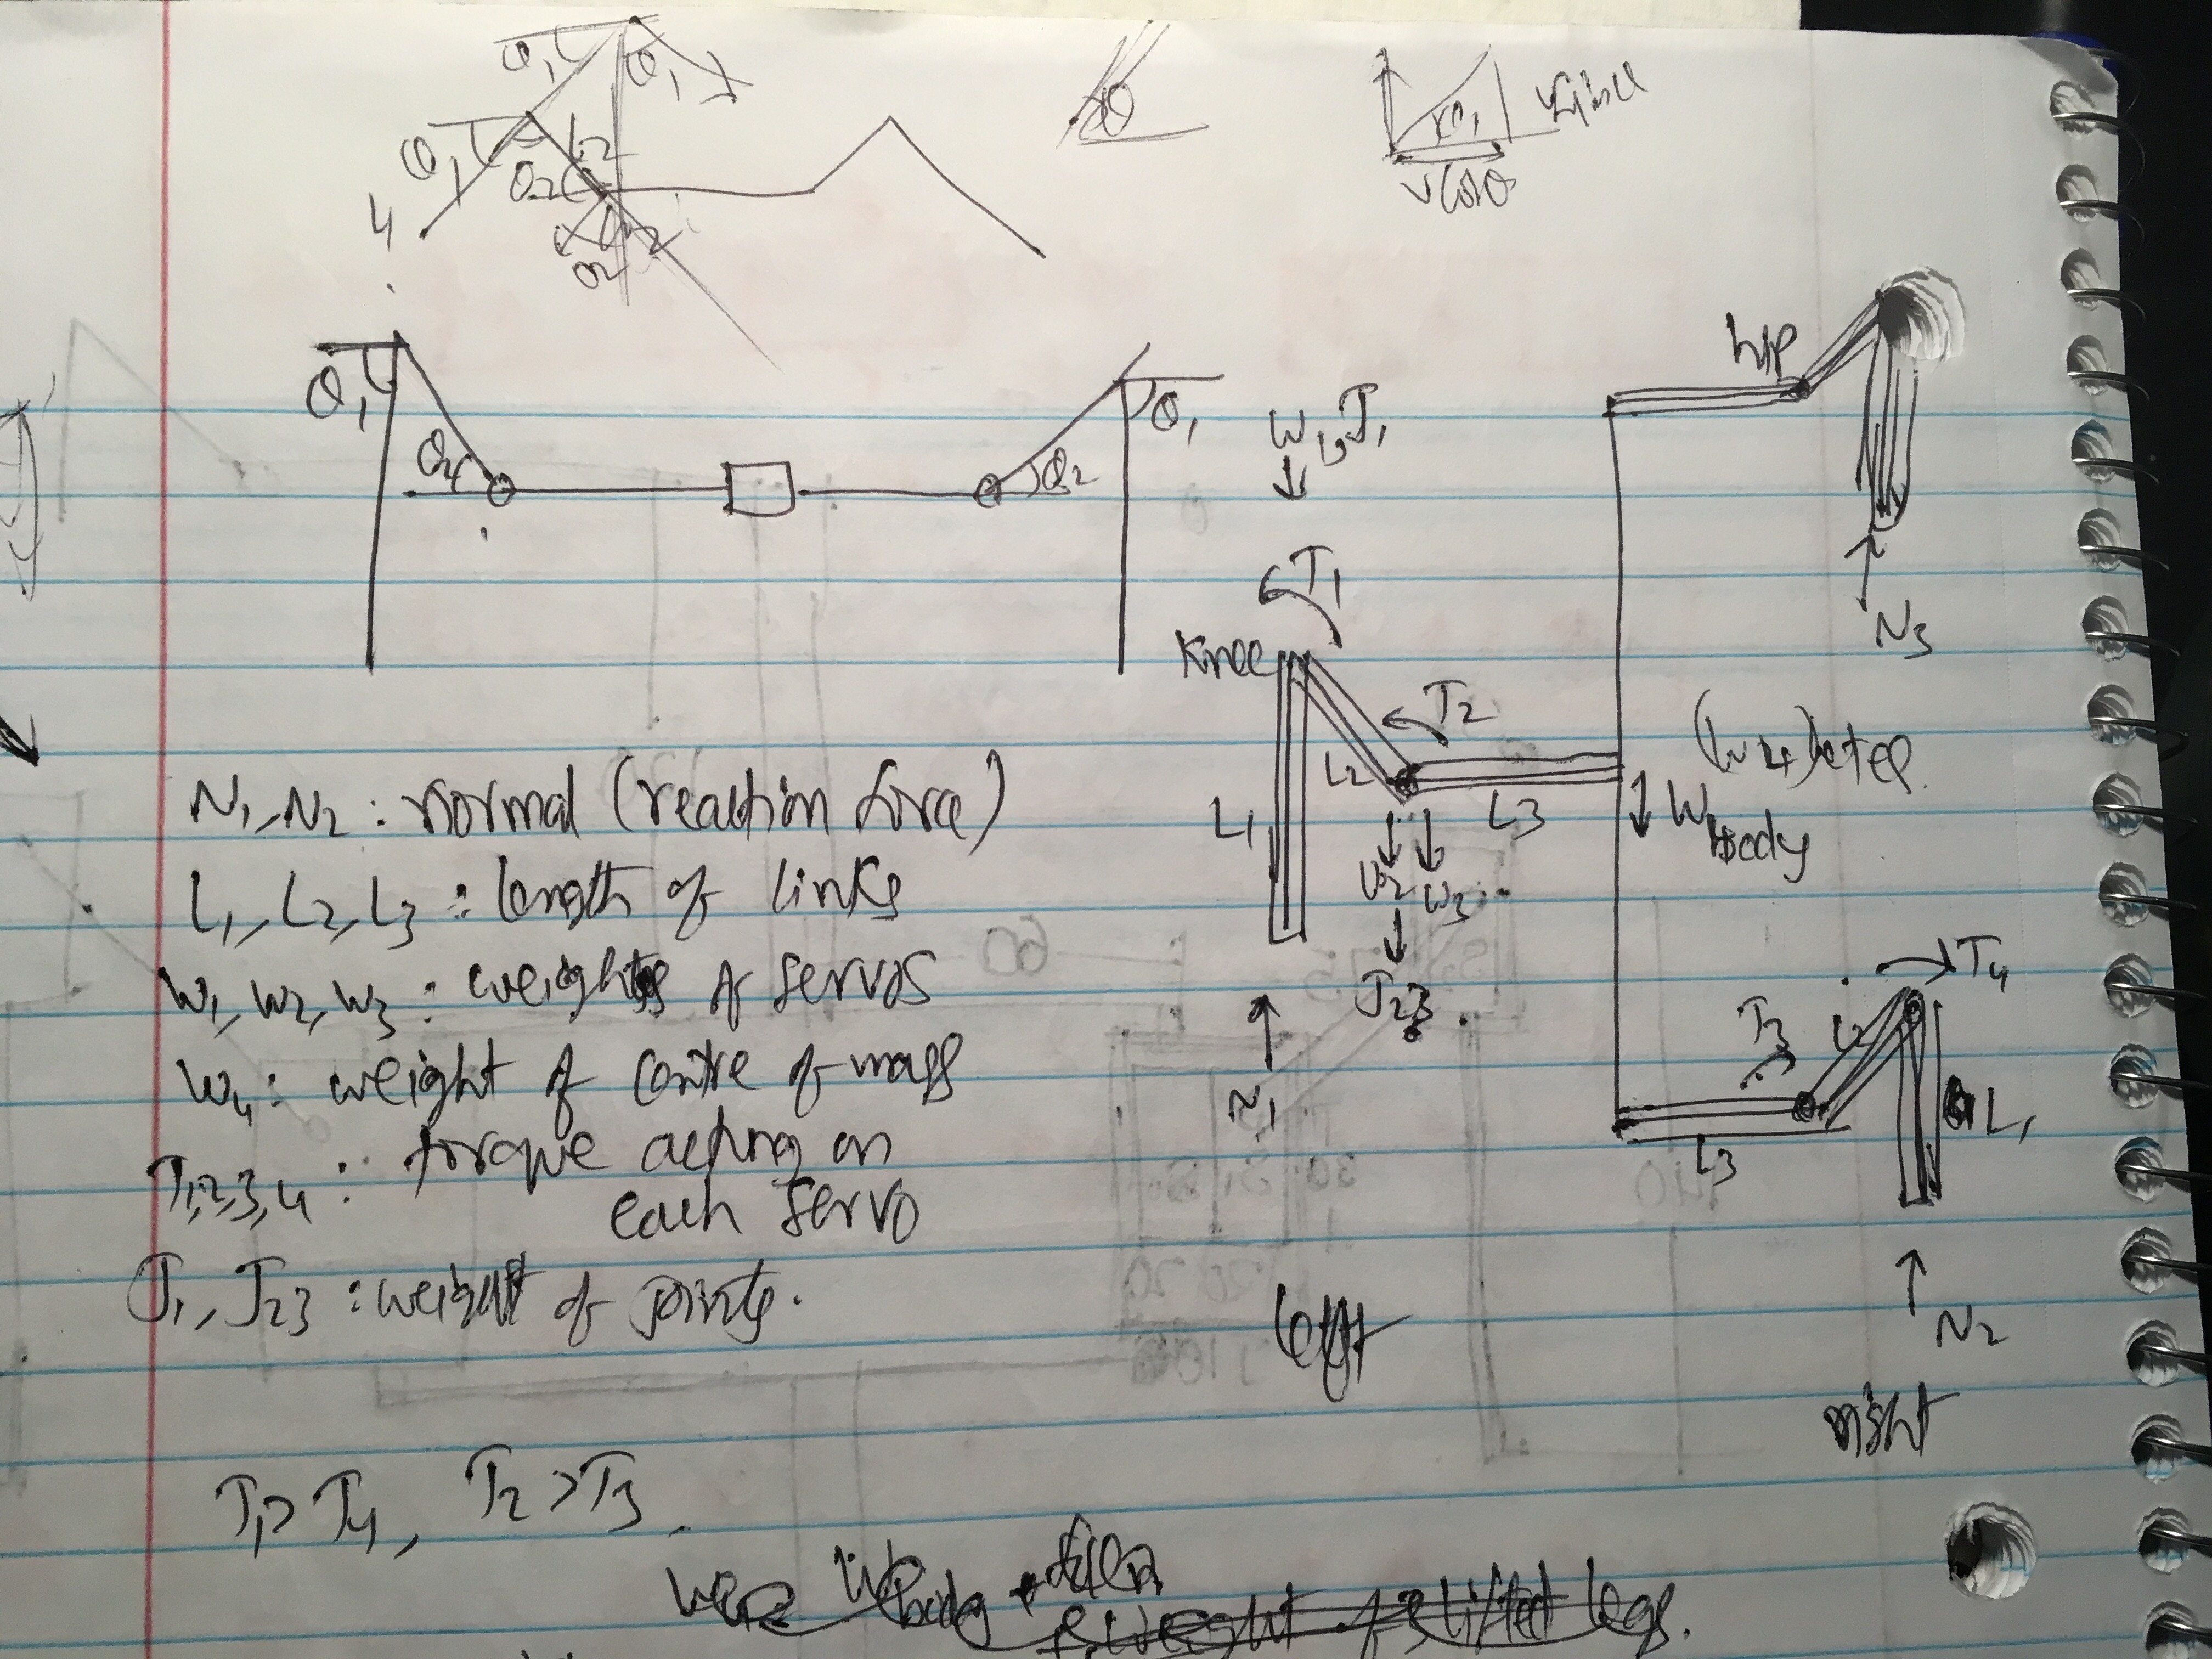 θ₁ θ₁
θ₁ L₂
θ₂
θ₂
θ
θ₁
vcosθ
θ₁ θ₂ θ₂ θ₁
W₁, J₁
hip
N₃
T₁
Knee
T₂
L₂
L₁ L₃
W body
W₂ W₃
J₂₃
N₁
T₄
T₃ L₂
L₁
L₃
N₂
left
right
N₁, N₂ : normal (reaction force)
L₁, L₂, L₃ : length of links
W₁, W₂, W₃ : weights of servos
W₄ : weight of centre of mass
T₁,₂,₃,₄ : torque acting on
each servo
J₁, J₂₃ : weight of joints.
T₁> T₄, T₂ >T₃
body
weight of lifted legs.